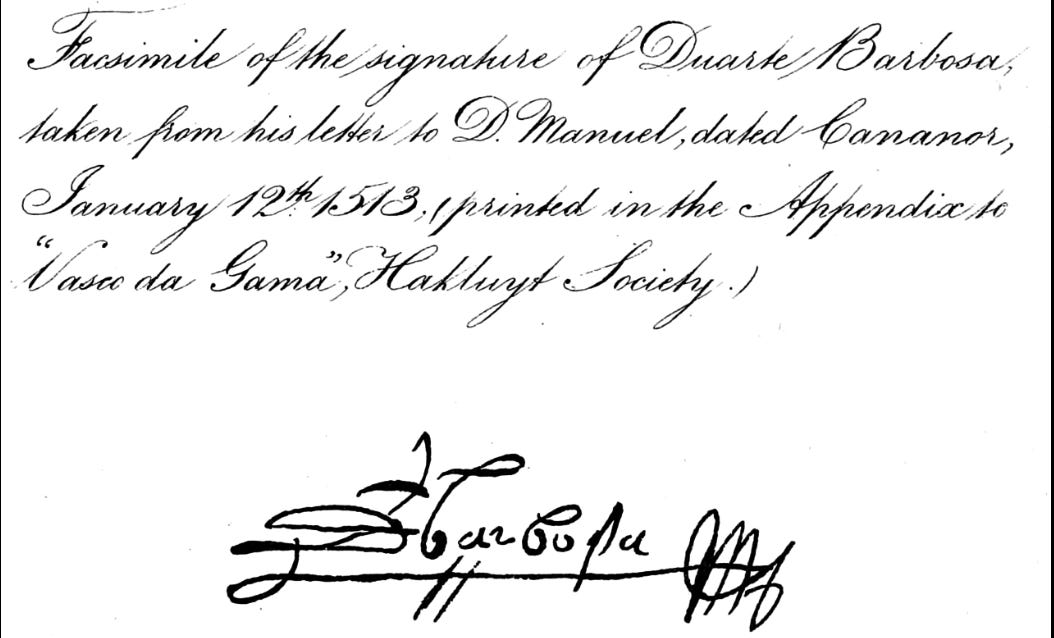 Facsimile of the signature of Duarte Barbosa,
taken from his letter to D. Manuel, dated Cananor,
January 12th 1513, (printed in the Appendix to
"Vasco da Gama", Hakluyt Society.)
barbosa